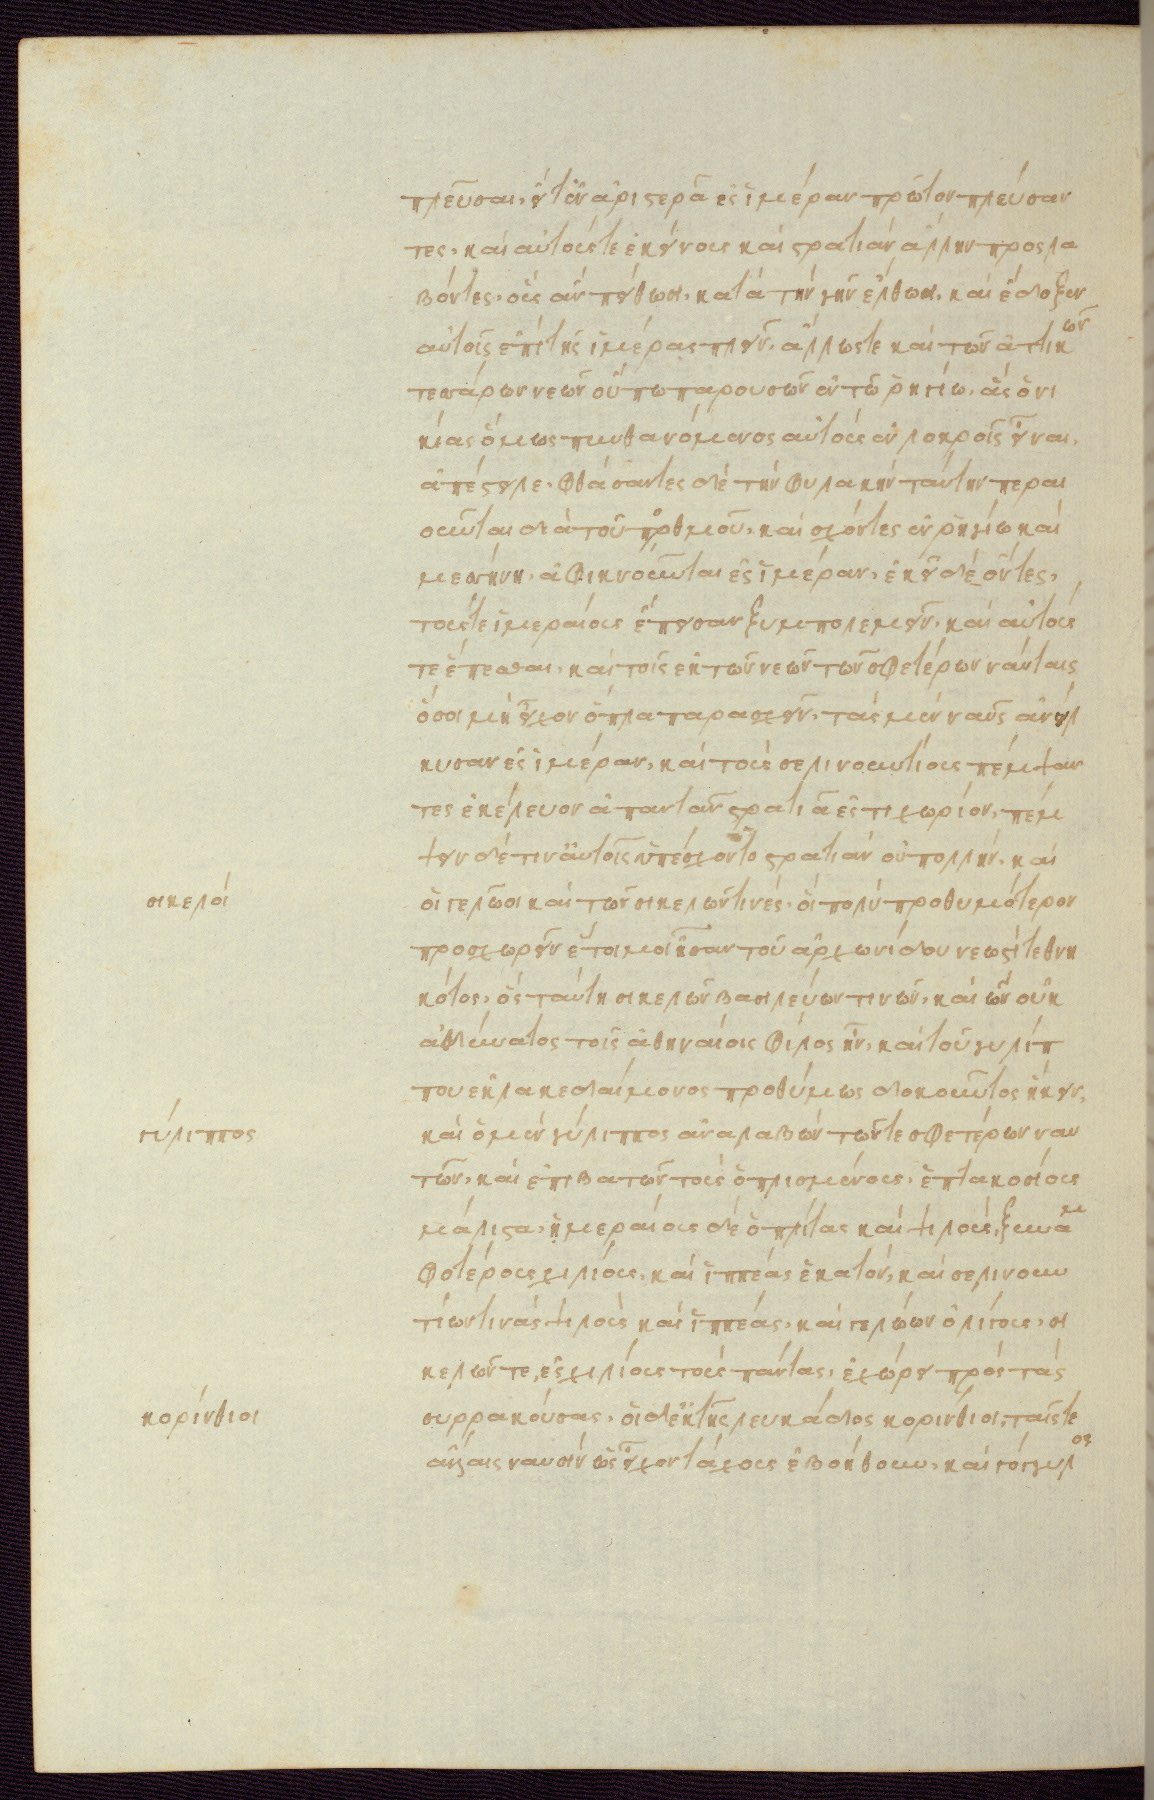 πλεῦσαι, εἴτ' ἐν ἀριστερᾷ ἐς ἱμέραν πρῶτον πλεύσαν
τες, καὶ αὐτούς τε ἐκείνους καὶ στρατιὰν ἄλλην προσλα
βόντες, οὓς ἂν πείθωσι, κατὰ τὴν γῆν ἔλθωσι, καὶ ἔδοξεν
αὐτοῖς ἐπὶ τῆς ἱμέρας πλεῖν, ἄλλως τε καὶ τῶν ἀττικῶν
τεσσάρων νεῶν οὔπω παρουσῶν ἐν τῷ ῥηγίῳ, ἃς ὁ νι
κίας ὅμως πυνθανόμενος αὐτοὺς ἐν λοκροῖς εἶναι,
ἀπέστειλε, φθάσαντες δὲ τὴν φυλακὴν ταύτην περαι
οῦνται διὰ τοῦ πορθμοῦ, καὶ σχόντες ἐν ῥηγίῳ καὶ
μεσσήνῃ, ἀφικνοῦνται ἐς ἱμέραν, ἐκεῖ δὲ ὄντες,
τούς τε ἱμεραίους ἔπεισαν ξυμπολεμεῖν, καὶ αὐτούς
τε ἕπεσθαι, καὶ τοῖς ἐκ τῶν νεῶν τῶν σφετέρων ναύταις
ὅσοι μὴ εἶχον ὅπλα παρασχεῖν, τὰς μὲν ναῦς ἀνείλ
κυσαν ἐς ἱμέραν, καὶ τοὺς σελινουντίους πέμψαν
τες ἐκέλευον ἀπαντᾶν στρατιᾷ ἔς τι χωρίον, πέμ
ψειν δέ τιν' αὐτοῖς ὑπέσχοντο στρατιὰν οὐ πολλὴν, καὶ
οἱ γελῶοι καὶ τῶν σικελῶν τινές, οἳ πολὺ προθυμότερον
προσχωρεῖν ἕτοιμοι ἦσαν τοῦ ἀρχωνίδου νεωστὶ τεθνη
κότος, ὃς ταύτῃ σικελῶν βασιλεύων τινῶν, καὶ ὢν οὐκ
ἀδύνατος τοῖς ἀθηναίοις φίλος ἦν, καὶ τοῦ γυλίπ
που ἐκ λακεδαίμονος προθύμως δοκοῦντος ἥκειν,
καὶ ὁ μὲν γύλιππος ἀναλαβὼν τῶν τε σφετέρων ναυ
τῶν, καὶ ἐπιβατῶν τοὺς ὡπλισμένους, ἑπτακοσίους
μάλιστα, ἡμεραίους δὲ ὁπλίτας καὶ ψιλούς, ξυναμ
φοτέρους χιλίους, καὶ ἱππέας ἑκατόν, καὶ σελινουν
τίων τινὰς ψιλοὺς καὶ ἱππέας, καὶ γελῴων ὀλίγους, σι
κελῶν τε, ἐς χιλίους τοὺς πάντας, ἐχώρει πρὸς τὰς
συρρακούσας, οἱ δ' ἐκ τῆς λευκάδος κορίνθιοι, ταῖς τε
ἄλλαις ναυσὶν ὡς εἶχον τάχους ἐβοήθουν, καὶ γογγυλος
σικελοί
γύλιππος
κορίνθιοι